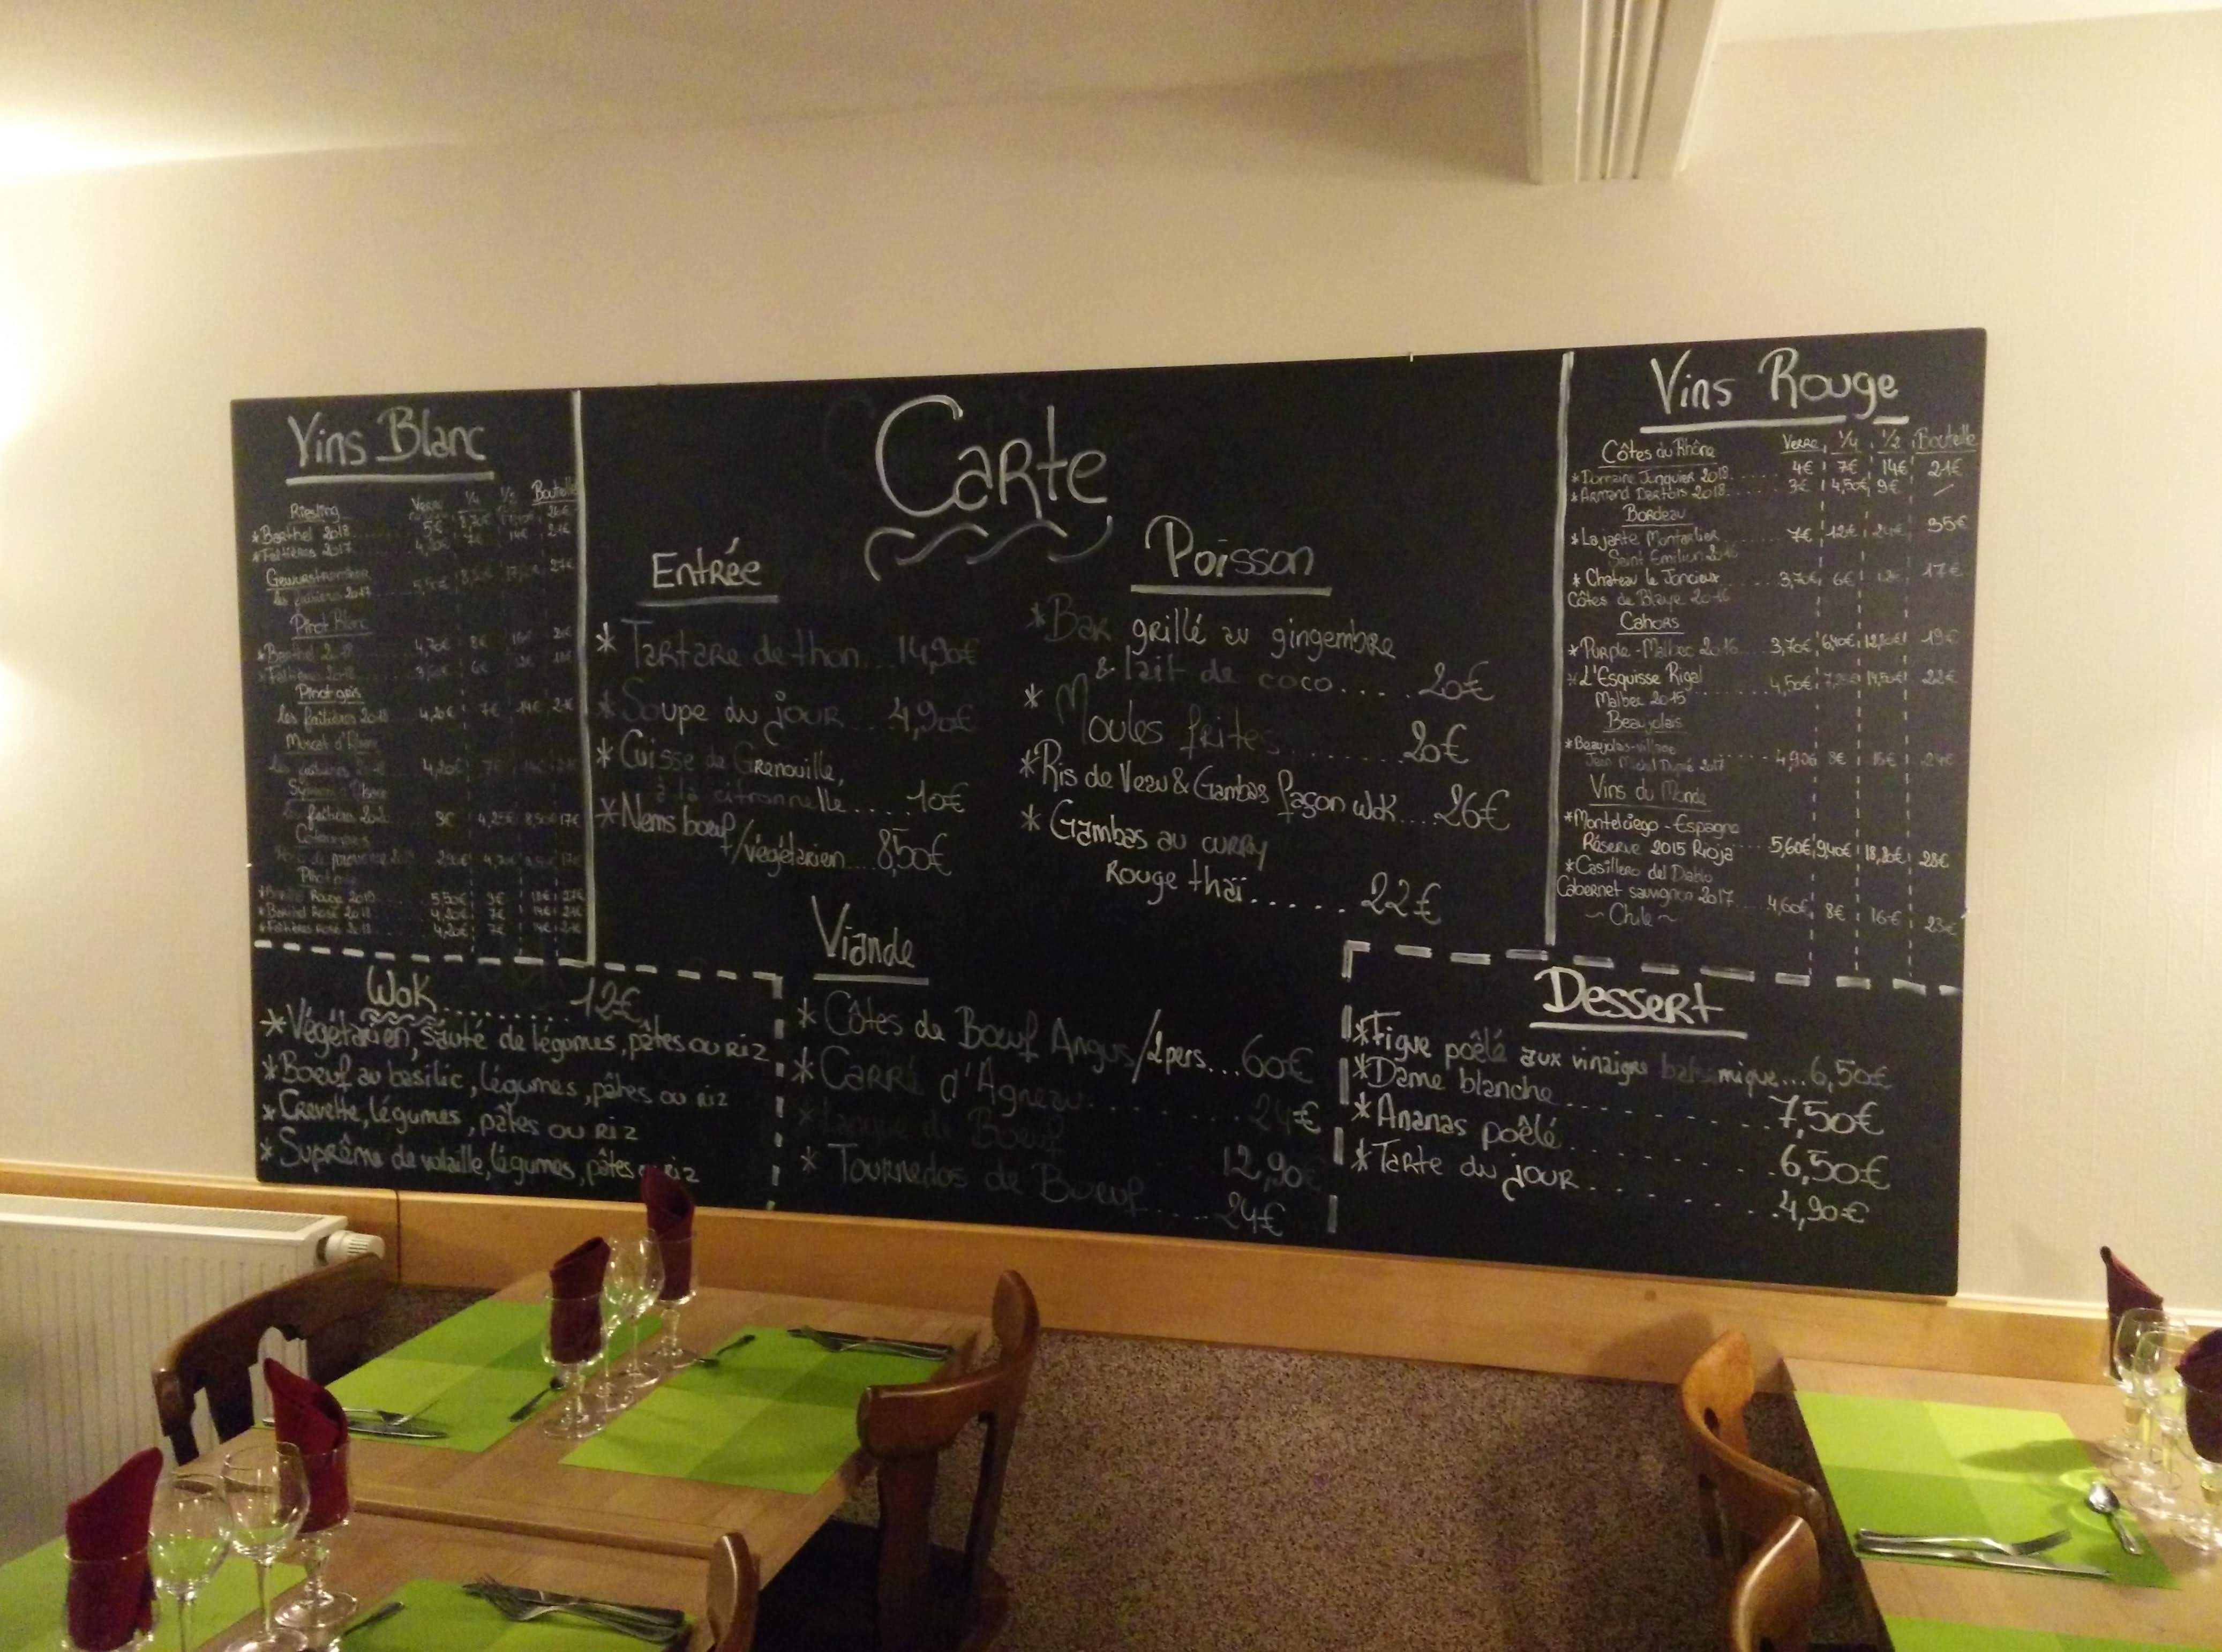 Carte
Vins Blanc
Verre 1/4 1/2 Bouteille
Riesling
*Barthel 2018 5€
*Faîtières 2017 4,20€ 7€ 14€ 21€
les faîtières 2017 27€
Pinot Blanc
*Barthel 4,70€ 8€ 16€
Pinot gris
les faîtières 2018 4,20€ 7€ 14€ 21€
Moscat d'Alsace
4,20€ 7€
4,25€ 8,50€ 17€
*Barthel Rosé 2018 4,20€ 7€ 14€ 21€
*Faîtières Rosé 2018 4,20€ 7€ 14€ 21€
Wok......... 12€
*Végétarien, sauté de légumes, pâtes ou riz
*Boeuf au basilic, légumes, pâtes ou riz
*Crevette, légumes, pâtes ou riz
*Suprême de volaille, légumes, pâtes ou riz
Entrée
*Tartare de thon...14,90€
*Soupe du jour...4,90€
*Cuisse de Grenouille,
à la citronnelle....10€
*Nems boeuf/végétarien...8,50€
Poisson
*Bar grillé au gingembre
& lait de coco.....20€
*Moules frites........20€
*Ris de Veau & Gambas façon wok....26€
*Gambas au curry
Rouge thaï......22€
Viande
*Côtes de Boeuf Angus/2pers...60€
*Carré d'Agneau.........24€
*Langue de Boeuf 12,90€
*Tournedos de Boeuf....24€
Vins Rouge
Côtes du Rhône Verre 1/4 1/2 Bouteille
*Domaine Junquier 2018 4€ 7€ 14€ 21€
*Armand Dartois 2018 3€ 4,50€ 9€ /
Bordeau
*La jarte Montarlier 7€ 12€ 24€ 35€
Saint Emilion 2016
*Chateau le Joncieux 3,70€ 6€ 12€ 17€
Côtes de Blaye 2016
Cahors
*Purple-Malbec 2016 3,70€ 6,40€ 12,80€ 19€
*L'Esquisse Rigal
Malbec 2015 4,50€ 7,25€ 14,50€ 22€
Beaujolais
*Beaujolas-village
Jean Michel Dupré 2017 4,90€ 8€ 16€ 24€
Vins du Monde
*Montelciego - Espagne
Réserve 2015 Rioja 5,60€ 9,40€ 18,80€ 28€
*Casillero del Diablo
Cabernet sauvignon 2017 4,60€ 8€ 16€ 23€
~ Chile ~
Dessert
*Figue poêlé aux vinaigre balsamique...6,50€
*Dame blanche...........7,50€
*Ananas poêlé...........6,50€
*Tarte du jour..........4,90€